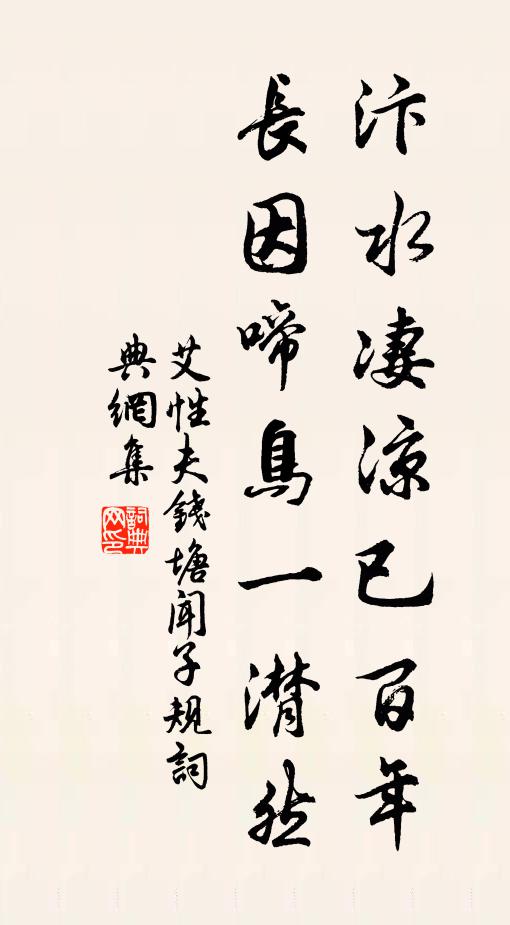 汴水凄涼已百年
長因啼鳥一潸然
艾性夫錢塘聞子規詞
典網集
詞典網印